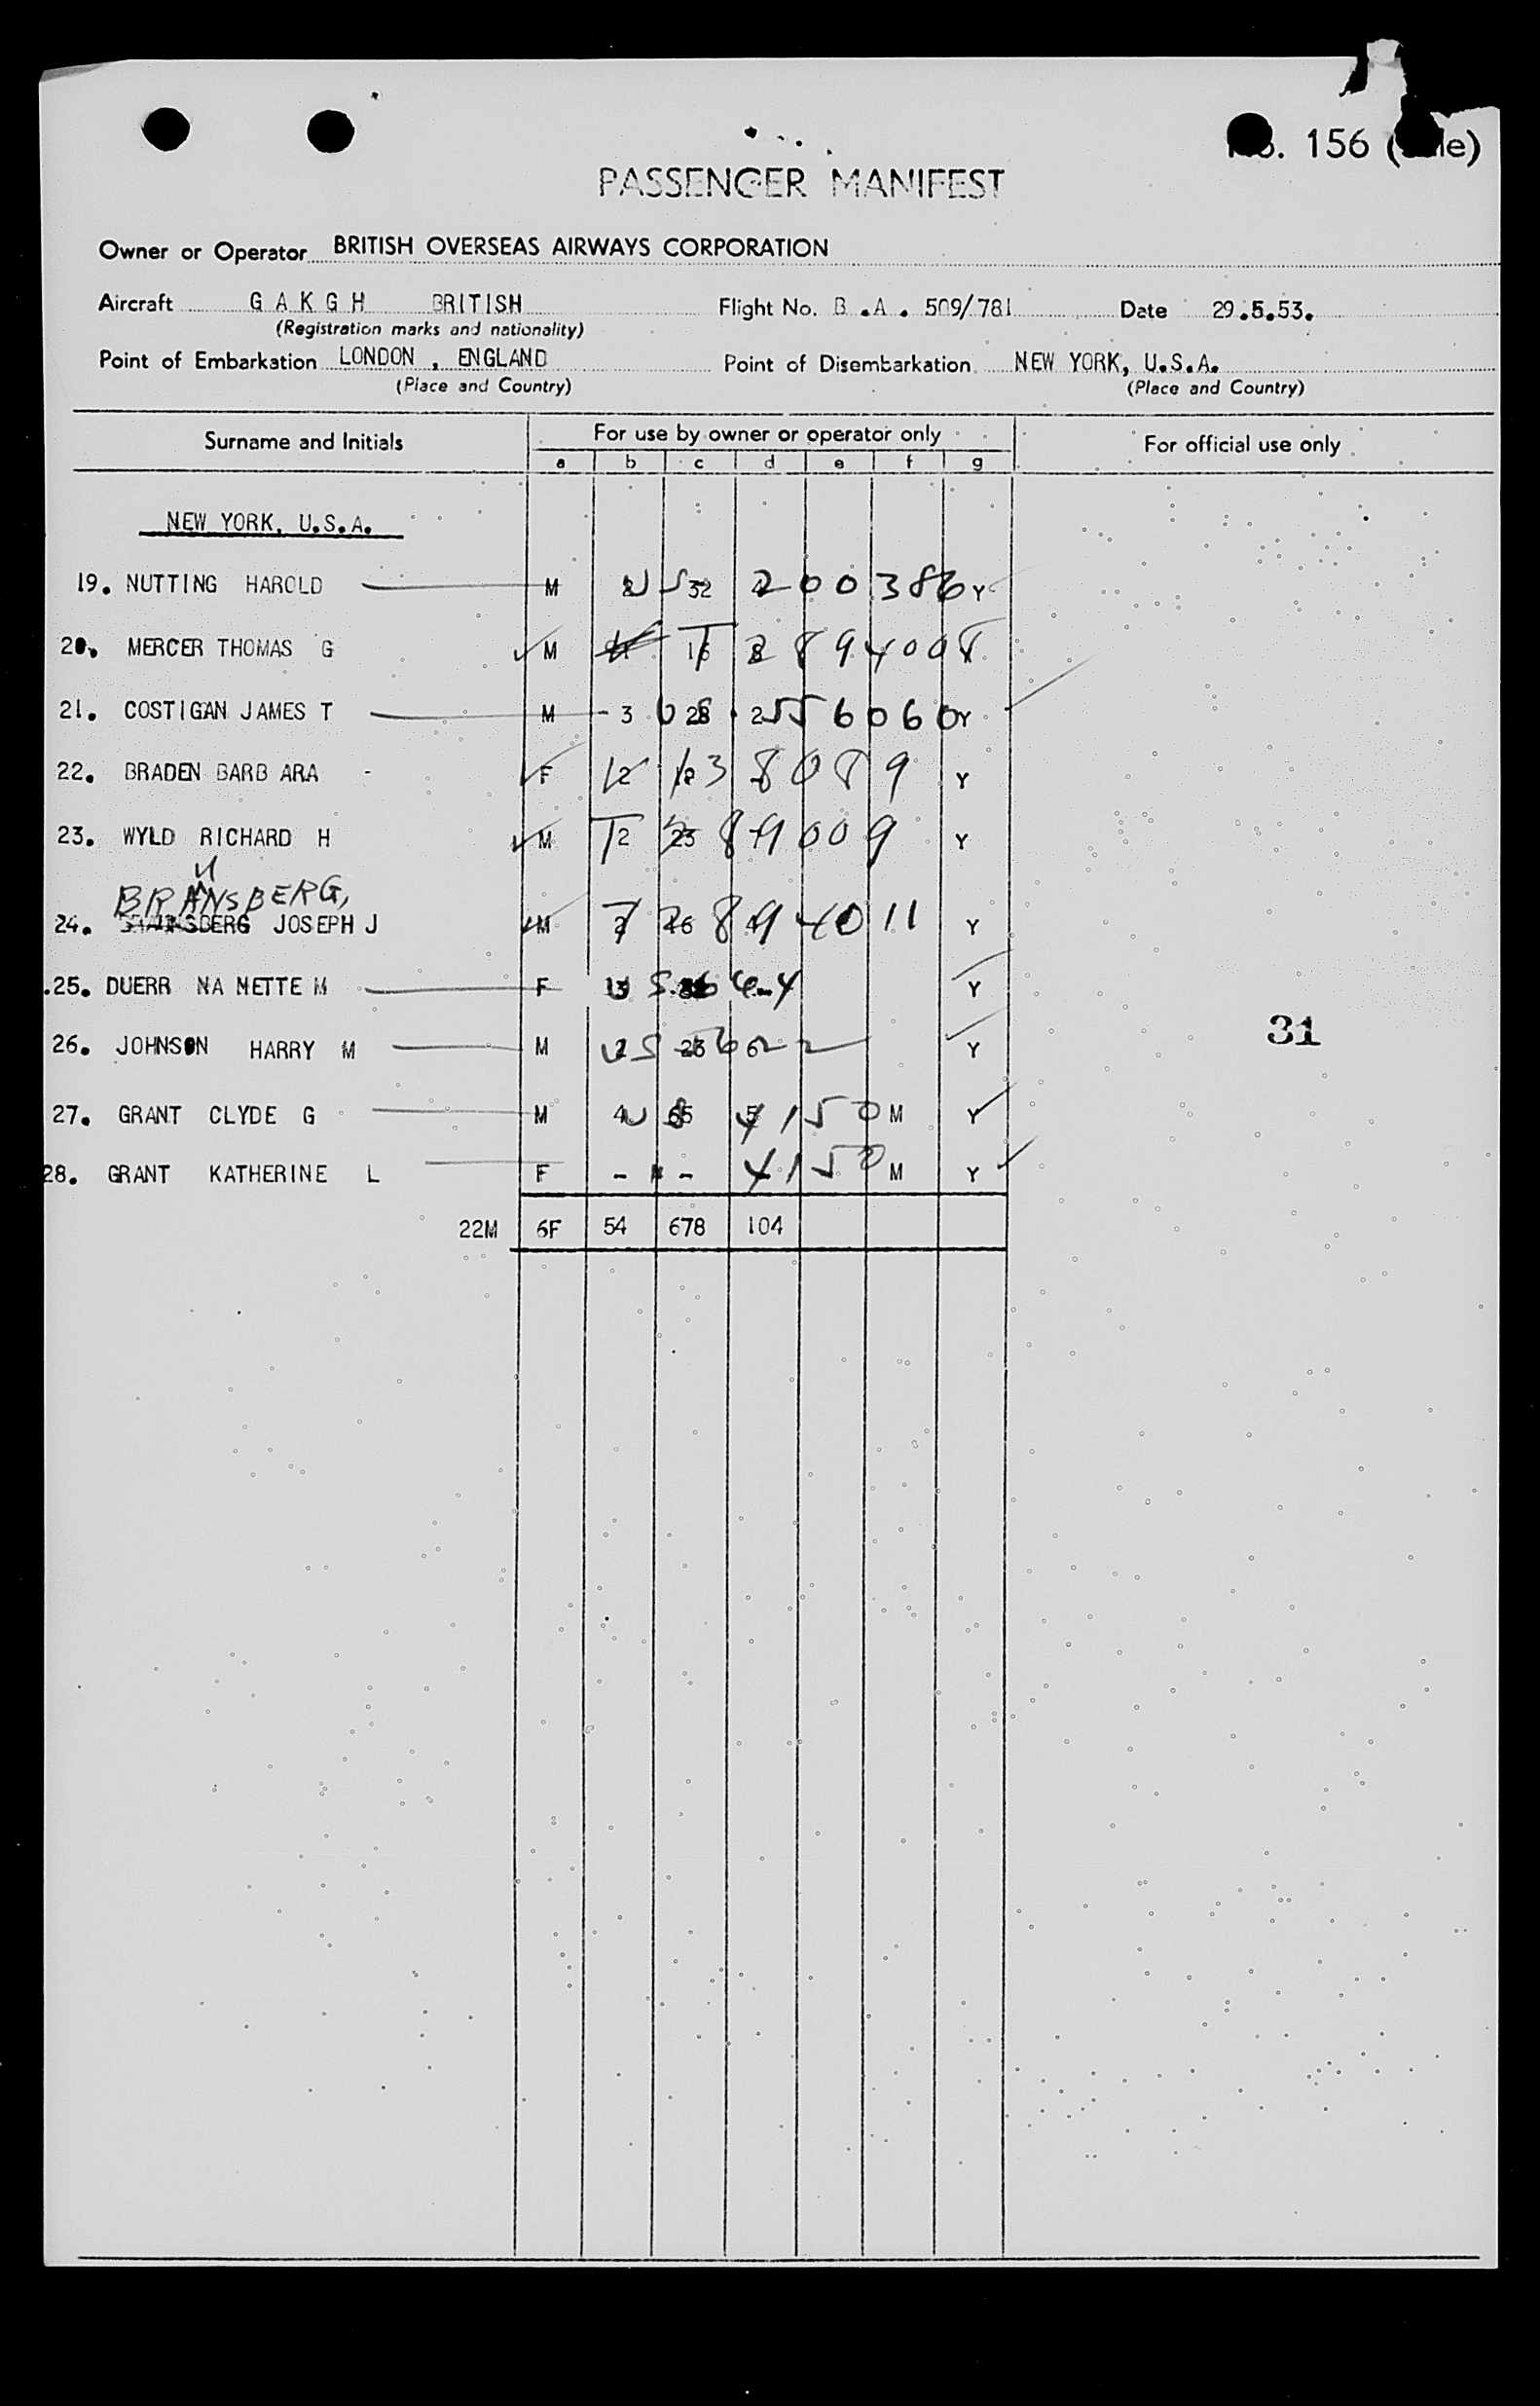 No. 156
PASSENGER MANIFEST
Owner or Operator BRITISH OVERSEAS AIRWAYS CORPORATION
Aircraft G A K G H BRITISH Flight No. B .A . 509/781 Date 29.5.53.
(Registration marks and nationality)
Point of Embarkation LONDON , ENGLAND Point of Disembarkation NEW YORK, U.S.A.
(Place and Country) (Place and Country)
Surname and Initials For use by owner or operator only For official use only
a b c d e f g
NEW YORK, U.S.A.
19. NUTTING HAROLD M US 32 200386 Y
20. MERCER THOMAS G M T 16 2894008
21. COSTIGAN JAMES T M 3 US 28 2556060 Y
22. BRADEN BARB ARA - F 2 138089 Y
23. WYLD RICHARD H M T 2 23 89009 Y
BRAUNSBERG,
24. JOSEPH J M 2 26 894011 Y
25. DUERR NA NETTE M F 13 US Y
26. JOHNSON HARRY M M 2 US 23 5622 6 Y
27. GRANT CLYDE G M 4 US 65 5 4150 M Y
31
28. GRANT KATHERINE L F - - 4150 M Y
22M 6F 54 678 104